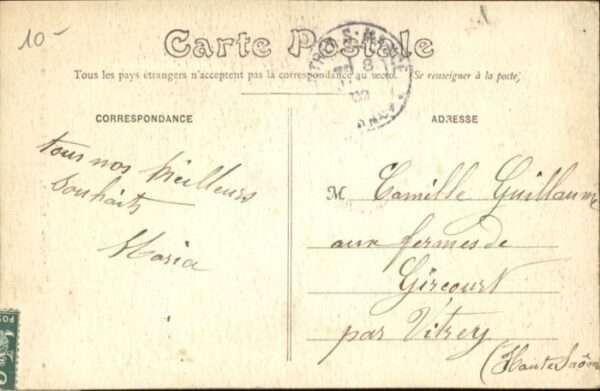 10-
Carte Postale
Tous les pays étrangers n'acceptent pas la correspondance au verso. (Se renseigner à la poste,
CORRESPONDANCE
tous nos meilleurs
souhaits
Maria
ADRESSE
M Camille Guillaume
aux fermes de
Gircourt
par Vitrey
(Haute Saône